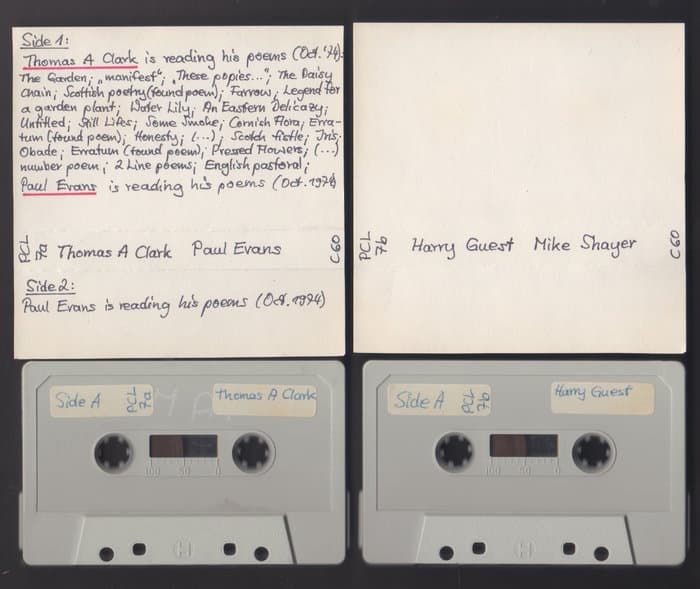 Side 1:
Thomas A Clark is reading his poems (Oct. '74).
The Garden; „manifest“; „These popies...“; The Daisy
Chain; Scottish poetry (found poem); Farrow; Legend for
a garden plant; Water Lily; An Eastern Delicazy;
Untitled; Still Lifes; Some Smoke; Cornish Flora; Erra-
tum (found poem); Honesty; (...); Scotch fistle; Iris;
Obade; Erratum (found poem); Pressed Flowers; (...)
number poem; 2 Line poems; English pastoral;
Paul Evans is reading his poems (Oct. 1974)
PCL 7a Thomas A Clark Paul Evans C60
Side 2:
Paul Evans is reading his poems (Oct. 1974)
PCL 7b Harry Guest Mike Shayer C60
Side A PCL 7a Thomas A Clark
100 50 0
Side A PCL 7b Harry Guest
100 50 0